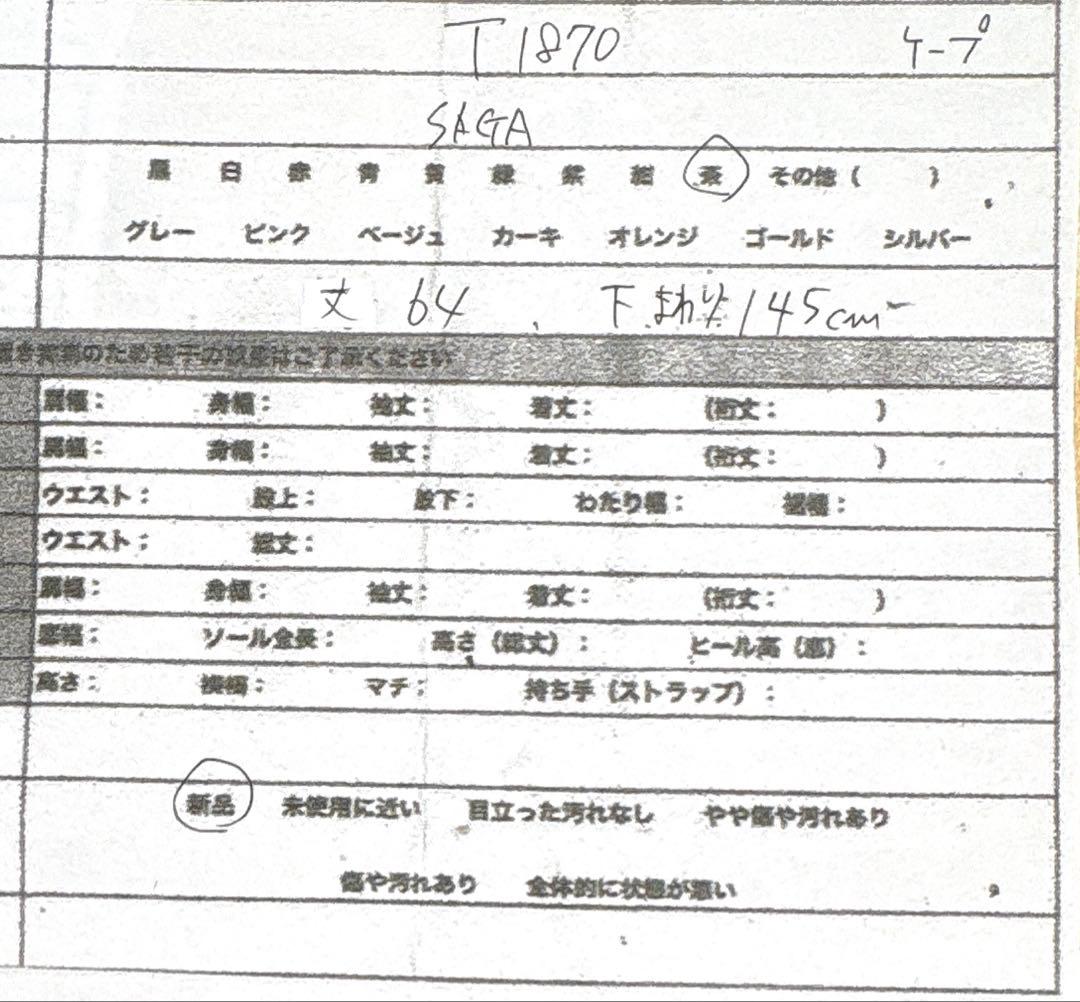 T1870 ケープ
SAGA
黒 白 赤 青 黄 緑 紫 紺 茶 その他 ( )
グレー ピンク ベージュ カーキ オレンジ ゴールド シルバー
丈 64 下まわり 145cm
のため若干の誤差はご了承ください
肩幅： 身幅： 袖丈： 着丈： (裄丈： )
肩幅： 身幅： 袖丈： 着丈： (裄丈： )
ウエスト： 股上： 股下： わたり幅： 裾幅：
ウエスト： 総丈：
肩幅： 身幅： 袖丈： 着丈： (裄丈： )
底幅： ソール全長： 高さ（総丈）： ヒール高（底）：
高さ： 横幅： マチ： 持ち手（ストラップ）：
新品 未使用に近い 目立った汚れなし やや傷や汚れあり
傷や汚れあり 全体的に状態が悪い